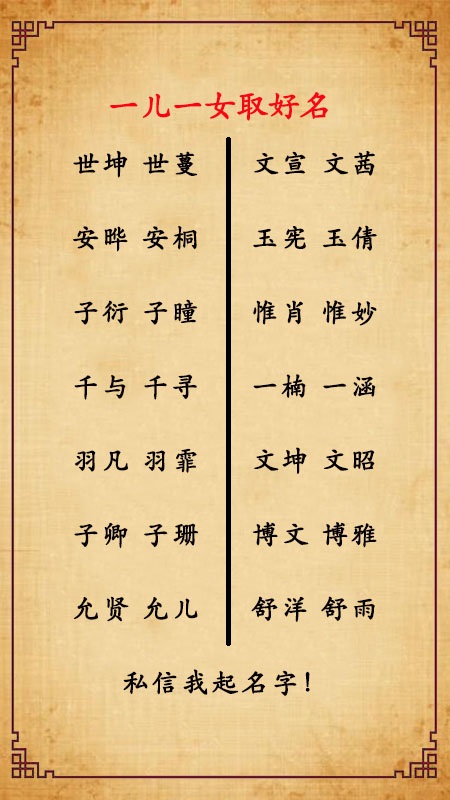 一儿一女取好名
世坤 世蔓 文宣 文茜
安晔 安桐 玉宪 玉倩
子衍 子瞳 惟肖 惟妙
千与 千寻 一楠 一涵
羽凡 羽霏 文坤 文昭
子卿 子珊 博文 博雅
允贤 允儿 舒洋 舒雨
私信我起名字!